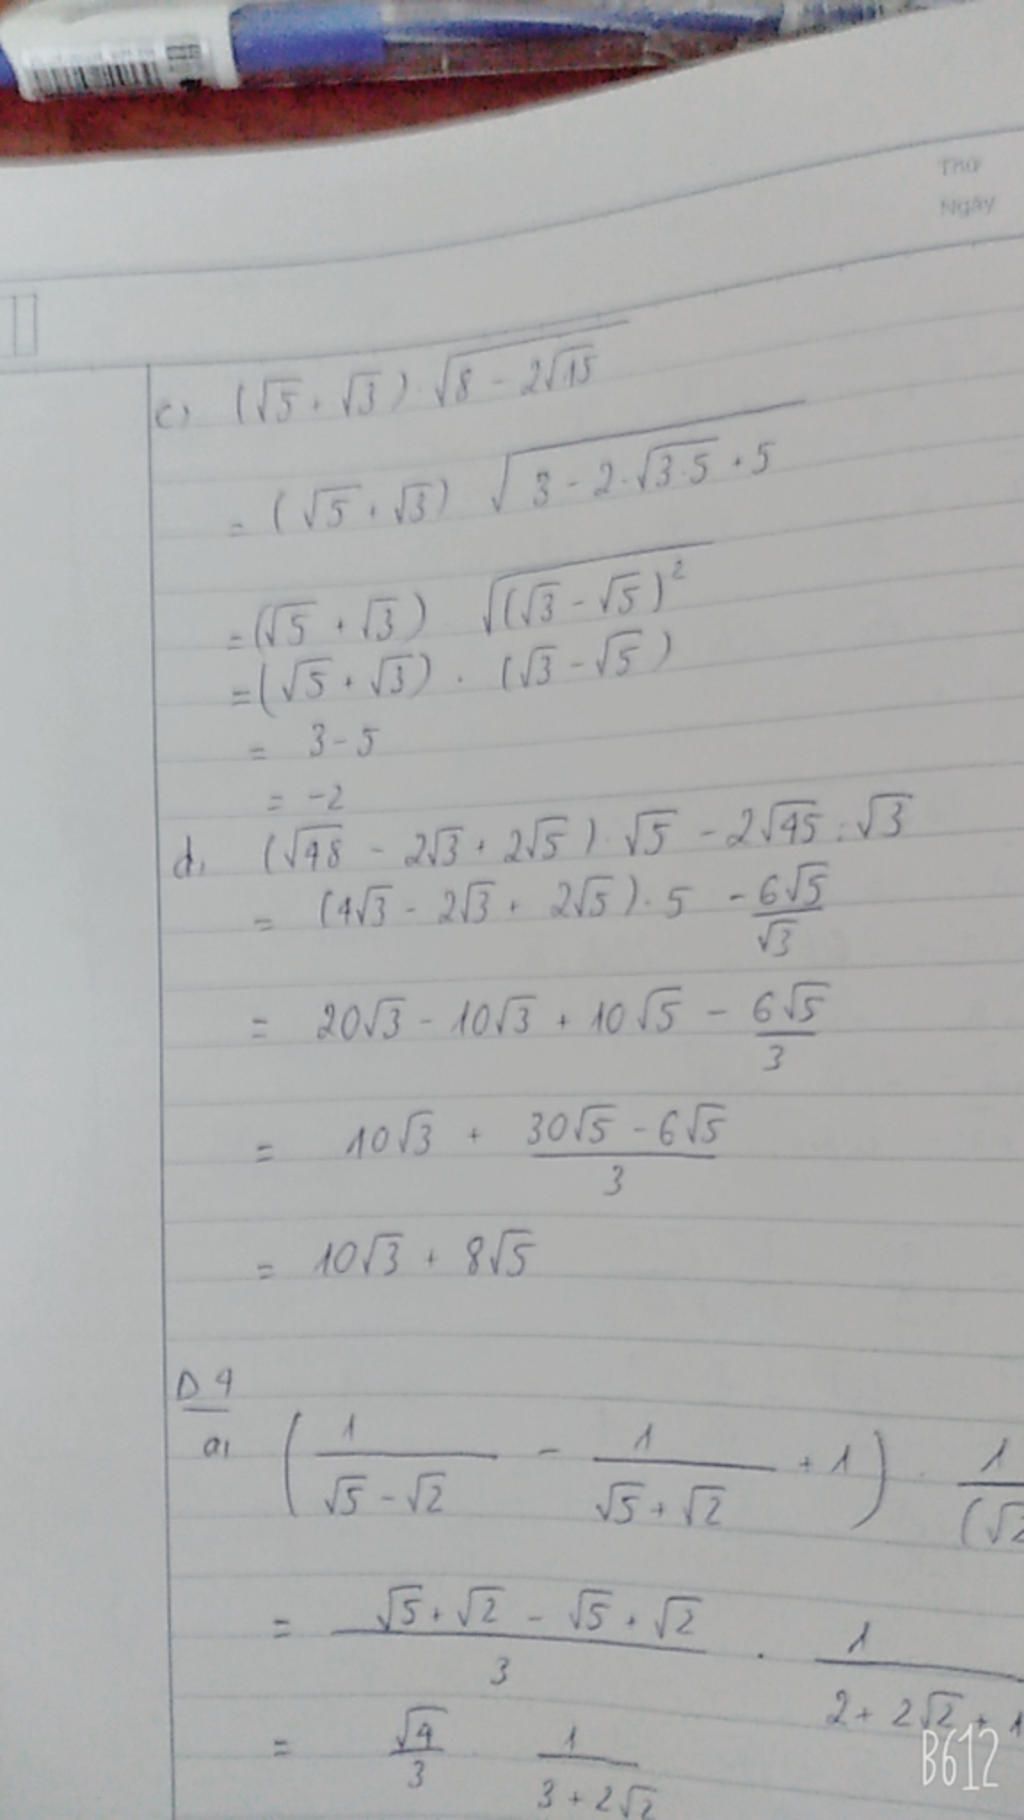 Thứ
Ngày
c) (√5 + √3) . √(8 - 2√15)
= (√5 + √3) √(3 - 2.√(3.5) + 5)
= (√5 + √3) √((√3 - √5)²)
= (√5 + √3) . (√3 - √5)
= 3 - 5
= -2
d, (√48 - 2√3 + 2√5) . √5 - 2√45 : √3
= (4√3 - 2√3 + 2√5) . 5 - 6√5/√3
= 20√3 - 10√3 + 10√5 - 6√5/3
= 10√3 + (30√5 - 6√5)/3
= 10√3 + 8√5
D4
a, (1/(√5 - √2) - 1/(√5 + √2) + 1) . 1/(√2
= (√5 + √2 - √5 + √2)/3 . 1/(2 + 2√2 + 1
= √4/3 1/(3 + 2√2)
B612